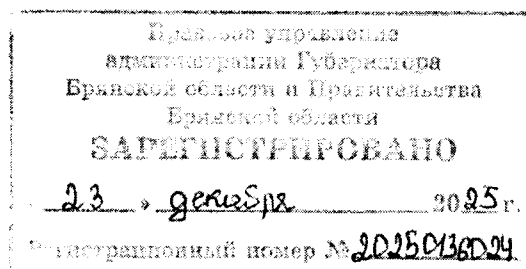 Правовое управление
администрации Губернатора
Брянской области и Правительства
Брянской области
ЗАРЕГИСТРИРОВАНО
23 » декабря 2025 г.
Регистрационный номер № 20250136024